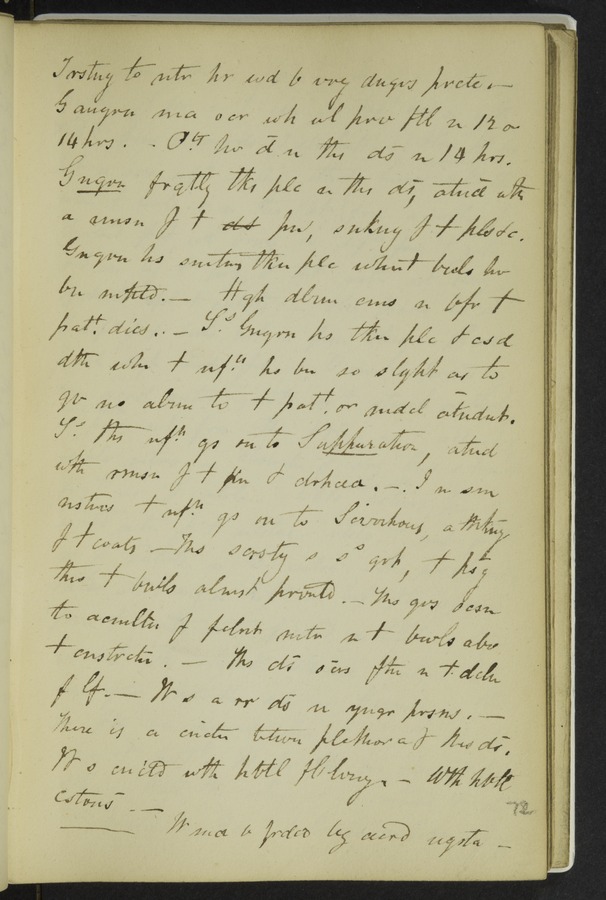 Trstng to ntr hr wd b vry dngrs prcte —
Gangrn ma ocr wh wl prov ftl n 12 o
14 hrs. - Ptt hv d n ths ds n 14 hrs.
Gngrn frqtly tks plc n ths ds, atnd wth
a rmsn f t pn, snkng f t pls &c.
Gngrn hs smtms tkn plc whn t bwls hv
bn — Hgh dlrm cms n bfr t
patt. dies. — Ss Gngrn hs tkn plc & csd
dth whn t nfn hs bn so slght as to
gv no alrm to t patt. or mdcl atndnt.
Ss ths nfn gs on to Suppuration, atnd
wth rmsn f t pn & drhœa. — In sm
nstncs t nfn gs on to Scirrhous, a thkng
f t coats — Ths scrsty s so grt, t psg
thro t bwls almst prvntd. — Ths gvs ocsn
to acmltn f mtr n t bwls abv
t cnstrctn. — Ths ds ocrs ftn n t dcln
f lf. — It s a rr ds n yngr prsns. —
There is a cnctn betwn plethora & ths ds.
It s cnctd wth hbtl — With hbtl
cstvns —
It ma b prdcd by acrd ngsta —
72